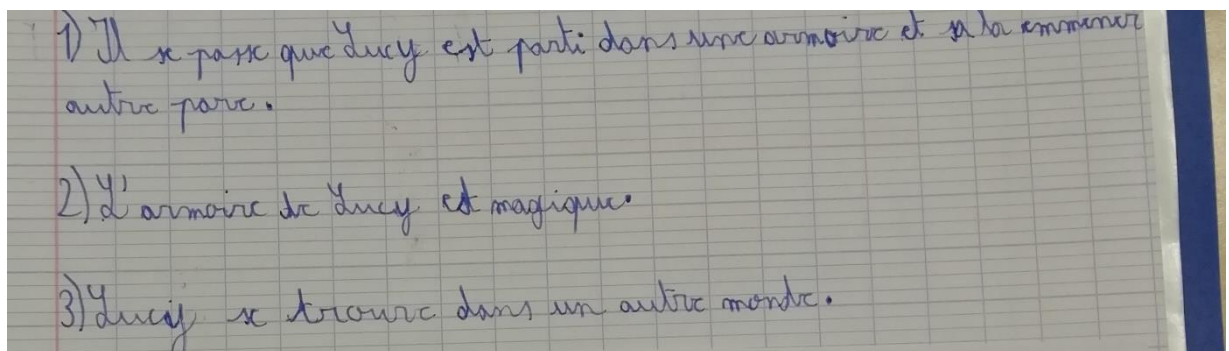 1) Il se passe que Lucy est parti dans une armoire et sa la emmener
autre parc.
2) L'armoire de Lucy est magique.
3) Lucy se trouve dans un autre monde.